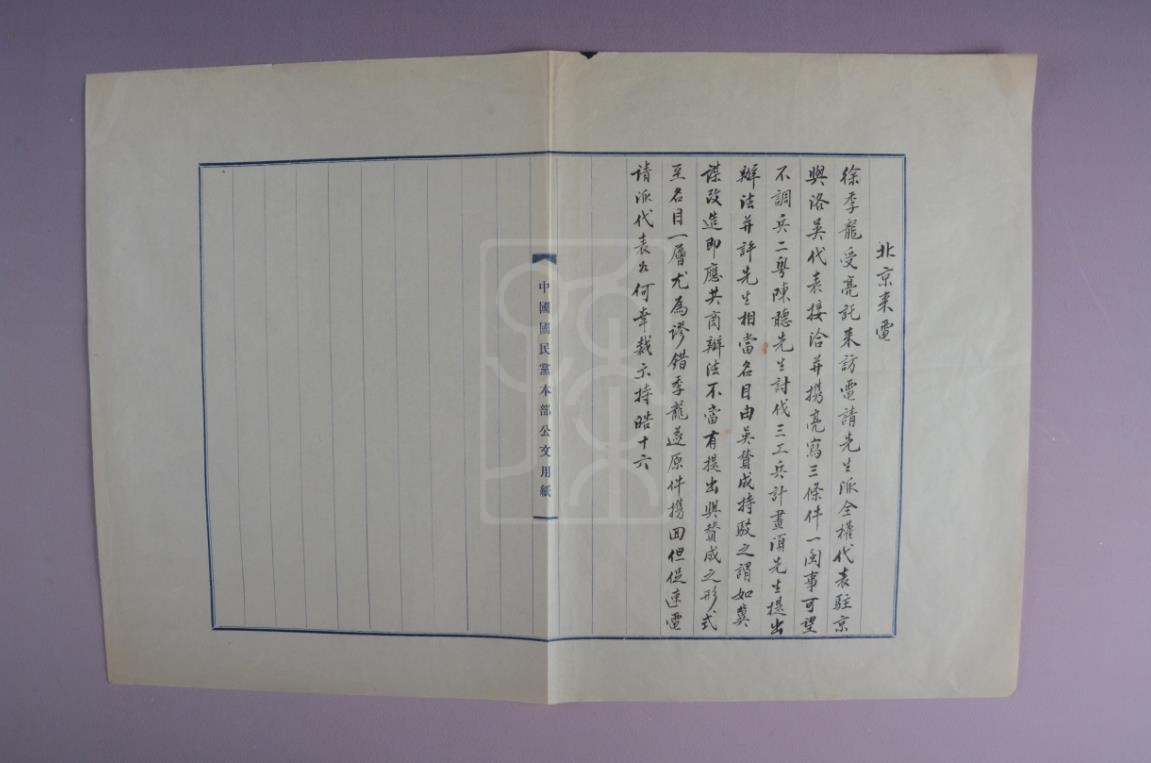 北京来電
徐季龍受亮託来訪電請先生派全權代表駐京
與洛吳代表接洽并携亮寫三條件一閩事可望
不調兵二粵陳聽先生討伐三工兵計畫須先生提出
辦法并許先生相當名目由吳贊成持駁之謂如冀
謀改造即應共商辦法不當有提出與贊成之形式
至名目一層尤為謬錯季龍遂原件携回但促速電
請派代表如何幸裁示持晧十六
中國國民黨本部公文用紙